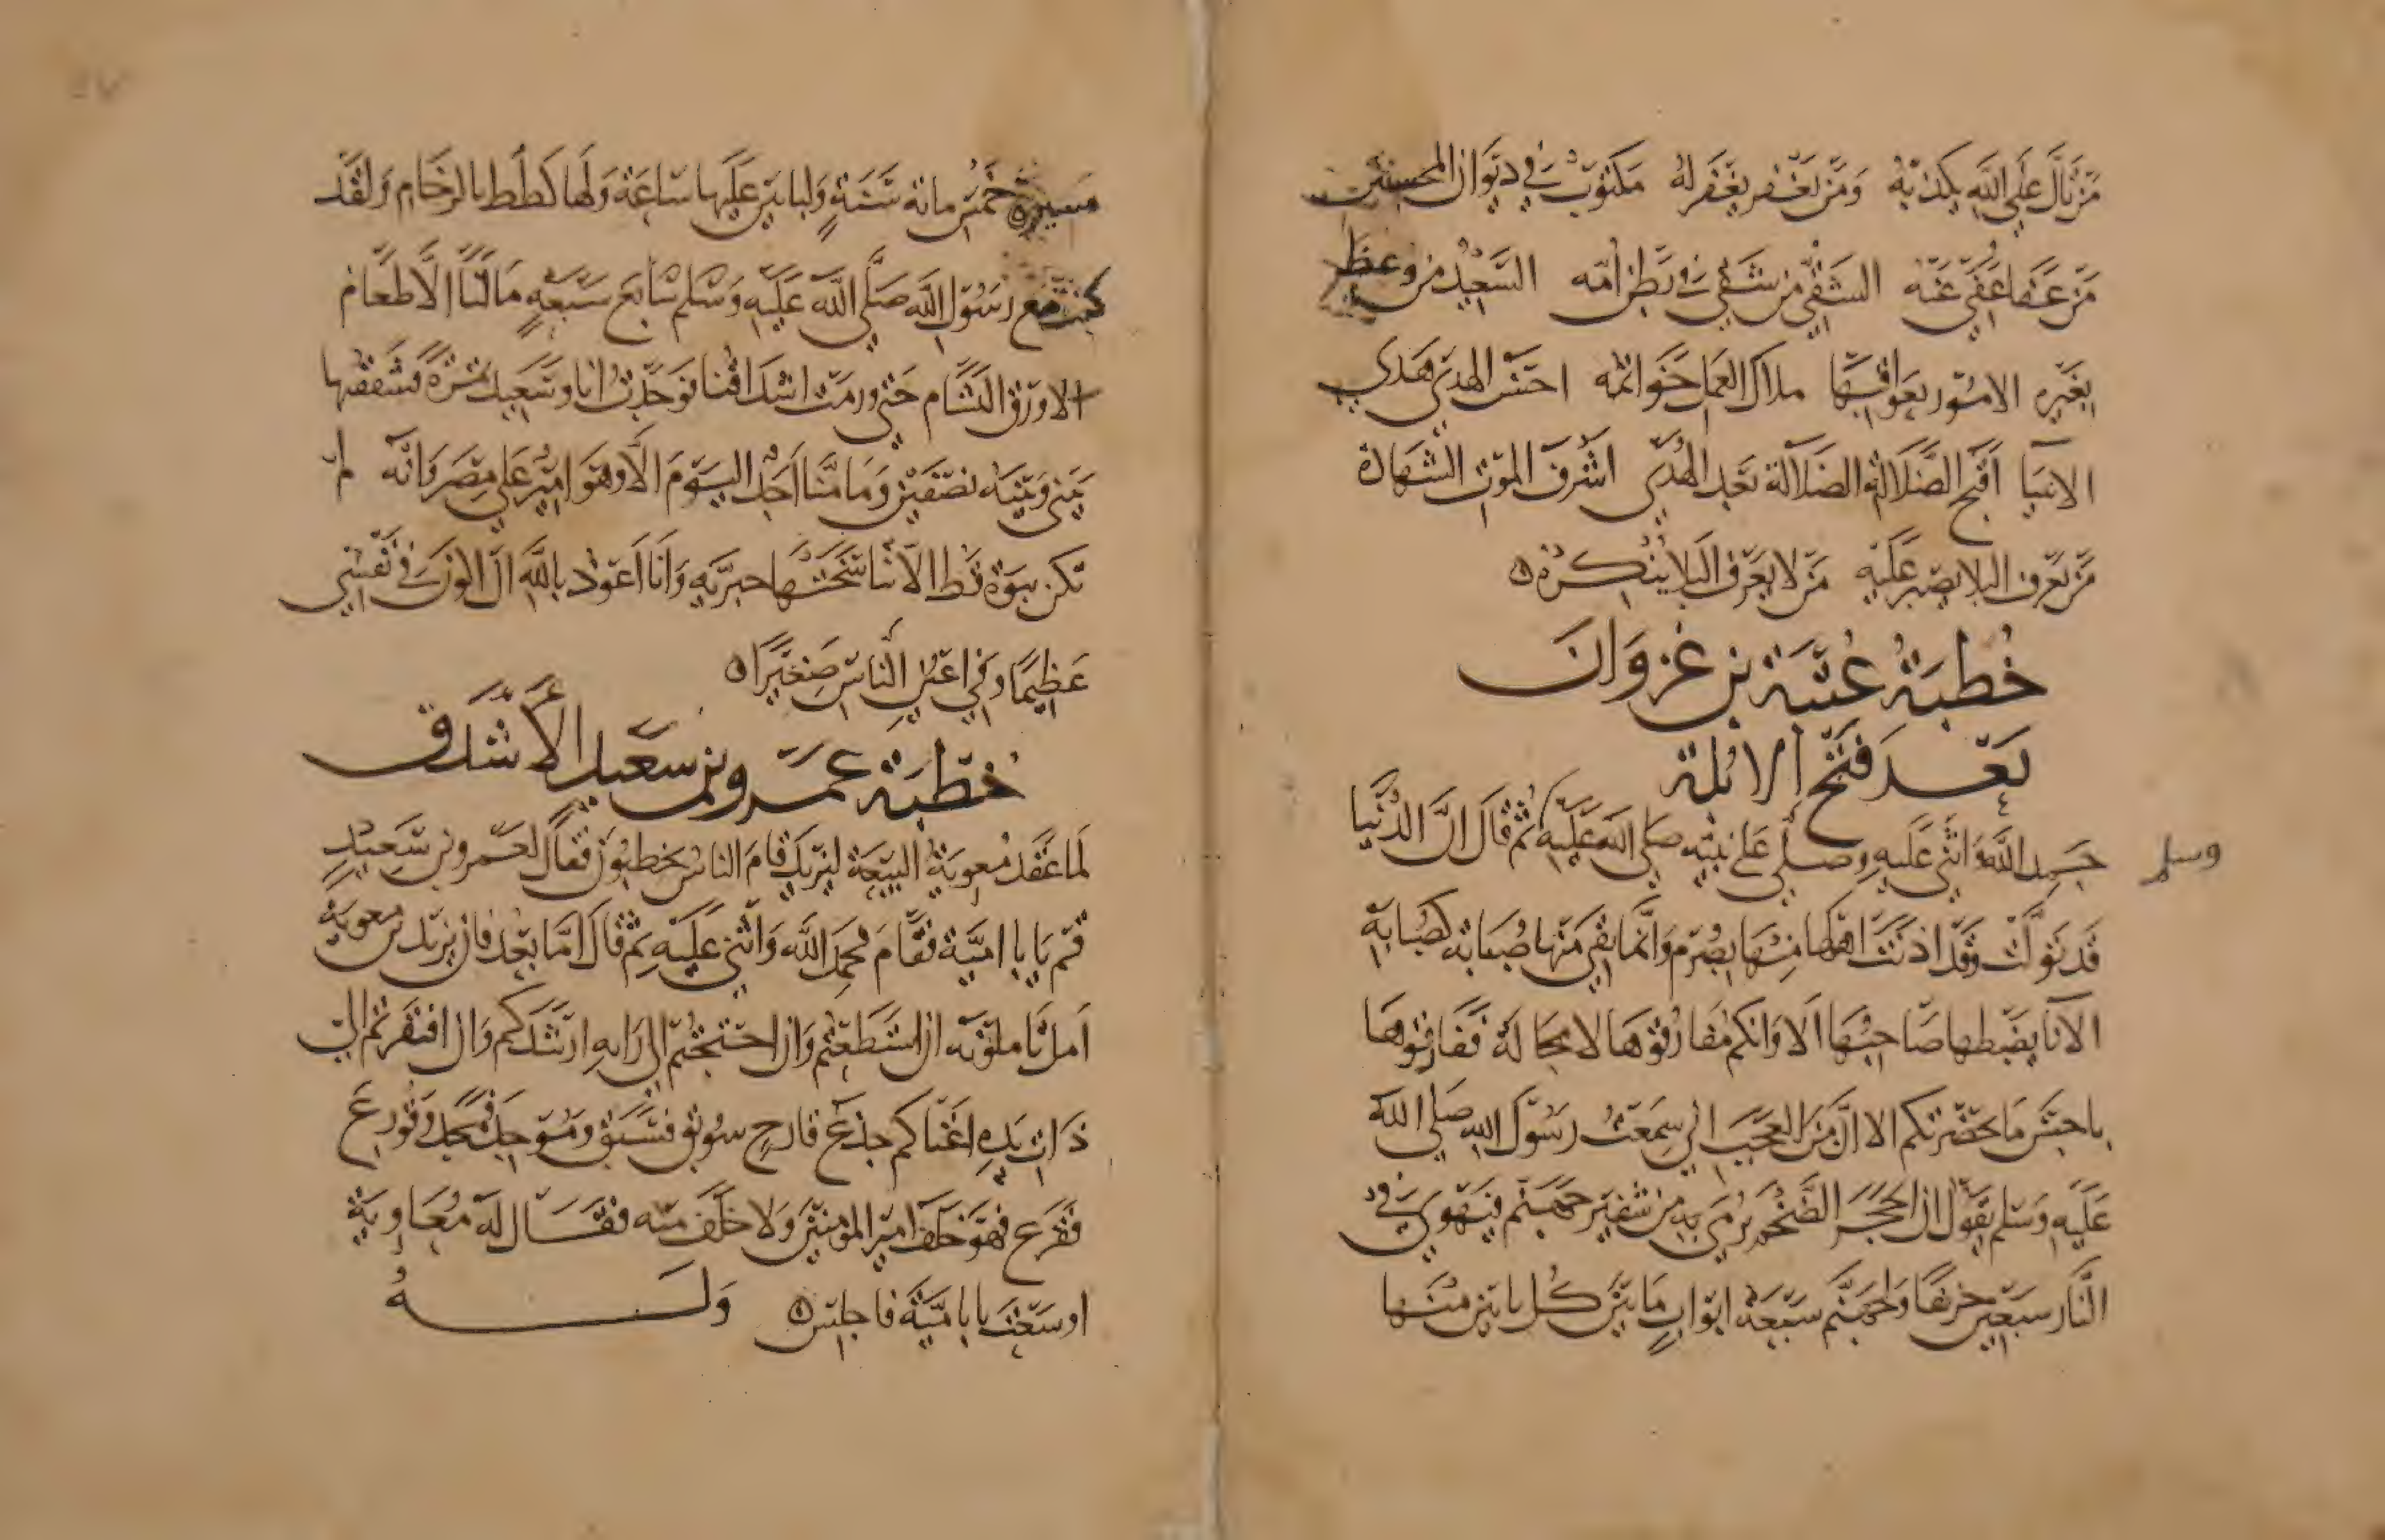 من يتأل على الله يكذبه ومن يغفر يغفر له مكتوب في ديوان المحسنين
من عفا عفي عنه الشقي من شقي في بطن امه السعيد من وعظ
بغيره الامور بعواقبها ملاك العمل خواتمه احسن الهدي هدي
الانبيا اقبح الضلالة الضلالة بعد الهدى اشرف الموت الشهادة
من يعرف البلا يصبر عليه من لا يعرف البلا ينكره
خطبة عتبة بن غزوان
بعد فتح الابلة
حمد الله واثنى عليه وصلى على نبيه صلى الله عليه ثم قال ان الدنيا
وسلم
قد تولت وقد اذنت اهلها منها بصرم وانما بقي منها صبابة كصبابة
الانا يصطبها صاحبها الا وانكم مفارقوها لا محالة ففارقوها
باحسن ما يحضرنكم الا ان من العجب اني سمعت رسول الله صلى الله
عليه وسلم يقول ان الحجر الضخم يرمى به من شفير جهنم فيهوي في
النار سبعين خريفا ولجهنم سبعة ابواب ما بين كل بابين منها
مسيرة خمس مائة سنة ولياتين عليها ساعة ولها كظيظ بالزحام ولقد
كنت مع رسول الله صلى الله عليه وسلم سابع سبعة ما لنا الا طعام
الا ورق البشام حتى ورمت اشداقنا فوجدت انا وسعيد تمرة فشققتها
بيني وبينه نصفين وما منا احد اليوم الا وهو امير على مصر وانه لم
تكن نبوة قط الا تناسختها جبرية وانا اعوذ بالله ان اكون في نفسي
عظيما وفي اعين الناس صغيرا
خطبة عمرو بن سعيد الاشدق
لما عقد معوية البيعة ليزيد قام الناس يخطبون فقال لعمرو بن سعيد
قم يا با امية فقام فحمد الله واثنى عليه ثم قال اما بعد فان يزيد بن معوية
امل تاملونه ان استطعتم وان احتجتم الى رايه ارشدكم وان افتقرتم الى
ذات يده اغناكم جذع قارح سوبق فسبق وموجد فمجد وقورع
فقرع فهو خلف امير المومنين ولا خلف منه فقال له معاوية
اوسعت يا با امية فاجلس وله